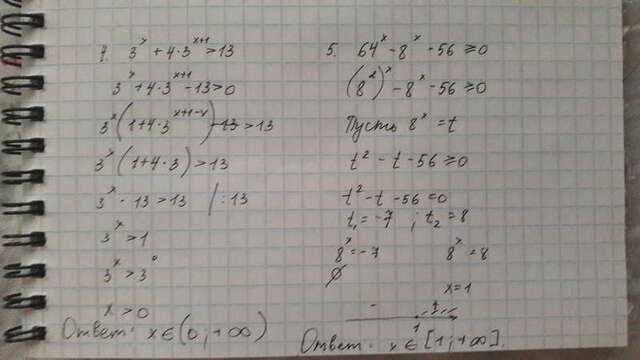 4. 3^x + 4·3^{x+1} > 13
3^x + 4·3^{x+1} - 13 > 0
3^x (1 + 4·3^{x+1-x}) - 13 > 13
3^x (1 + 4·3) > 13
3^x · 13 > 13 | : 13
3^x > 1
3^x > 3^0
x > 0
Ответ: x ∈ (0; +∞)
5. 64^x - 8^x - 56 ≥ 0
(8^2)^x - 8^x - 56 ≥ 0
Пусть 8^x = t
t^2 - t - 56 ≥ 0
t^2 - t - 56 = 0
t_1 = -7 ; t_2 = 8
8^x = -7 8^x = 8
∅
x = 1
- +
1
Ответ: x ∈ [1; +∞].